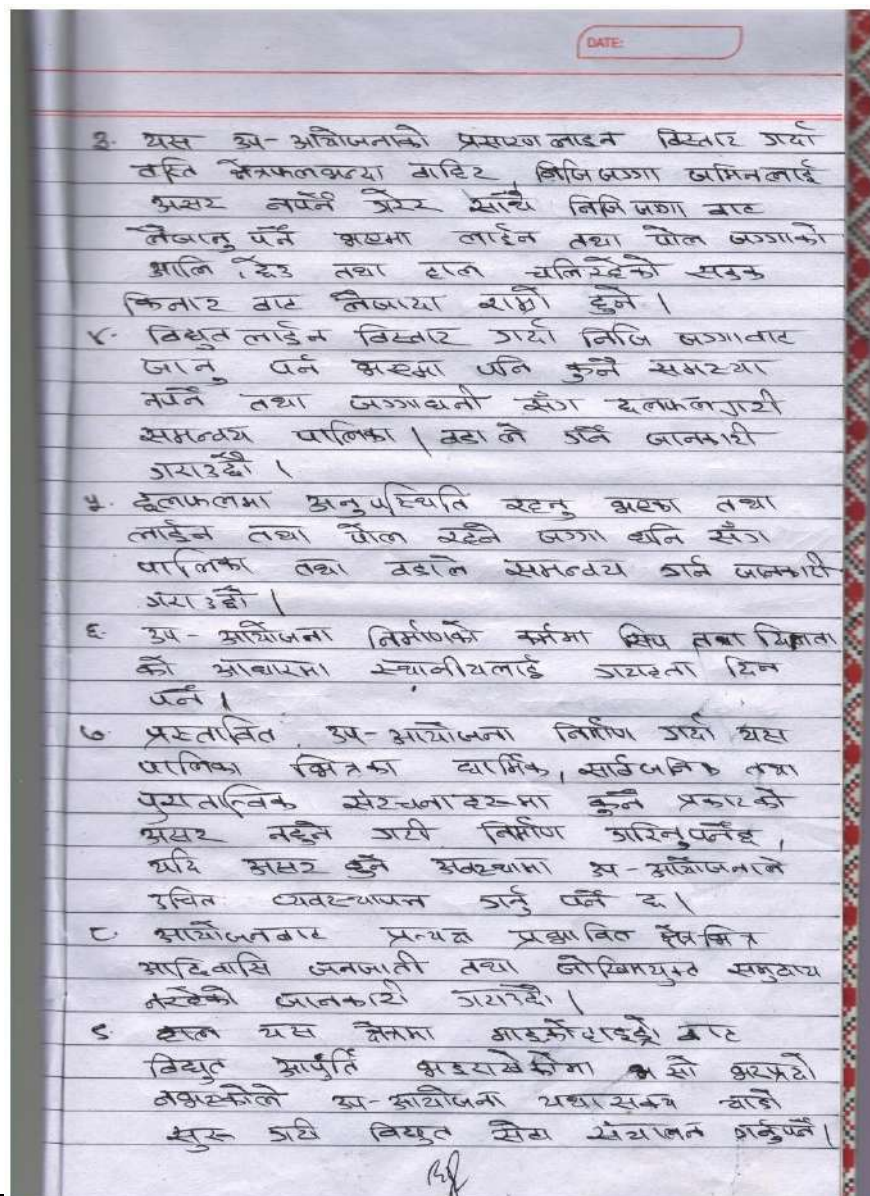 DATE:
३. यस उप-आयोजनाको प्रसारण लाइन विस्तार गर्दा
वस्ति क्षेत्रफलभन्दा बाहिर, निजि जग्गा जमिनलाई
असर नपर्ने गरेर साथै निजि जग्गा बाट
लैजानु पर्ने भएमा लाईन तथा पोल जग्गाको
आलि, छेउ तथा हाल चलिरहेको सडक
किनार बाट लैजाया राम्रो हुने।
४. विद्युत लाईन विस्तार गर्दा निजि जग्गाबाट
जानु पर्ने भएमा पनि कुनै समस्या
नपर्ने तथा जग्गाधनी सँग छलफल गरी
समन्वय पालिका / वडा ले गर्ने जानकारी
गराउँदछौं।
५. छलफलमा अनुपस्थिति रहनु भएका तथा
लाईन तथा पोल रहने जग्गा धनि सँग
पालिका तथा वडाले समन्वय गर्ने जानकारी
गराउँछौं।
६. उप-आयोजना निर्माणको क्रममा सिप तथा
को आधारमा स्थानीयलाई दिन
पर्ने।
७. प्रस्तावित उप-आयोजना निर्माण गर्दा यस
पालिका भित्रका धार्मिक, सार्वजनिक तथा
पुरातात्विक संरचनाहरूमा कुनै प्रकारको
असर नहुने गरी निर्माण गरिनुपर्नेछ,
यदि असर हुने अवस्थामा उप-आयोजनाले
उचित व्यवस्थापन गर्नु पर्ने छ।
८. आयोजनबाट प्रत्यक्ष प्रभावित क्षेत्रभित्र
आदिवासि जनजाती तथा जोखिमयुक्त समुदाय
नरहेको जानकारी गराउदछौं।
९. हाल यस क्षेत्रमा माइक्रोहाइड्रो बाट
विद्युत आपुर्ति भइराखेकोमा सो भरपर्दो
नभएकोले उप-आयोजना यथासक्य चाडो
सुरु गरी विद्युत सेवा संचालन गर्नुपर्ने।